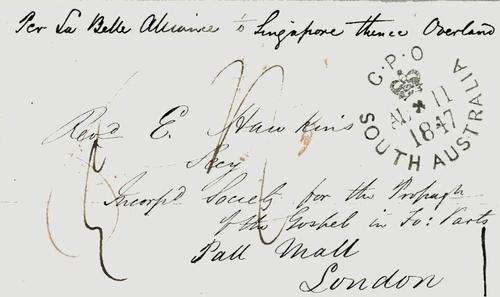 Per La Belle Alliance to Singapore thence Overland
G.P.O
AU 11
1847
SOUTH AUSTRALIA
Revd E. Hawkins
Secy
Incorpd Society for the Propagn
of the Gospel in Fo: Parts
Pall Mall
London